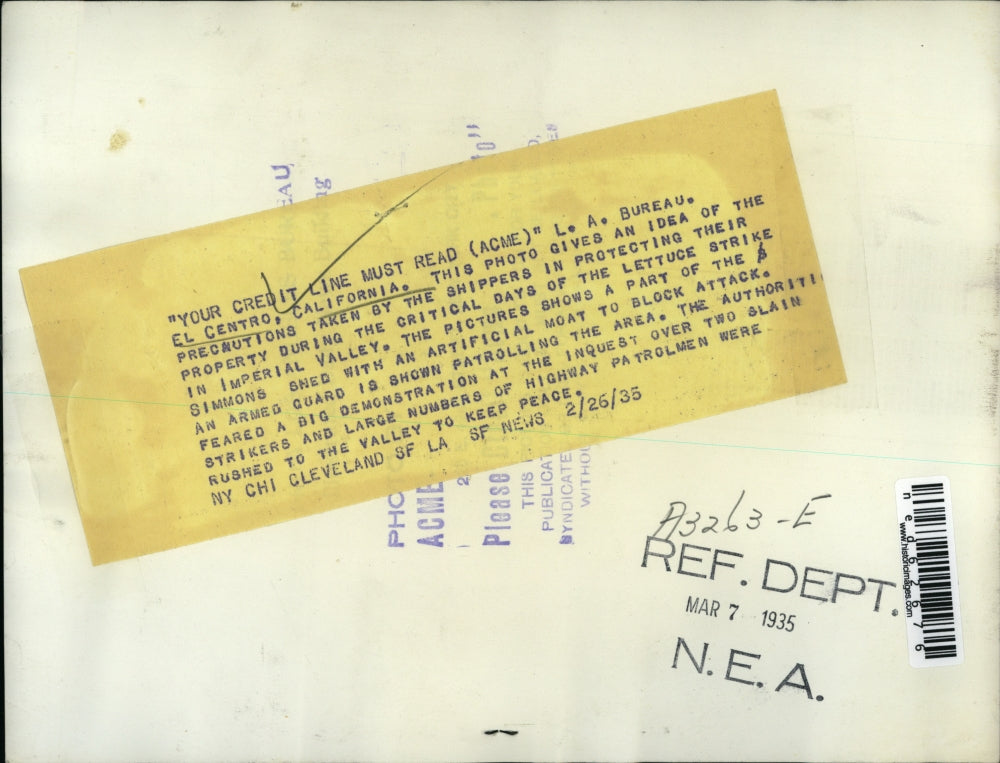 "YOUR CREDIT LINE MUST READ (ACME)" L. A. BUREAU.
EL CENTRO, CALIFORNIA. THIS PHOTO GIVES AN IDEA OF THE
PRECAUTIONS TAKEN BY THE SHIPPERS IN PROTECTING THEIR
PROPERTY DURING THE CRITICAL DAYS OF THE LETTUCE STRIKE
IN IMPERIAL VALLEY. THE PICTURES SHOWS A PART OF THE
SIMMONS SHED WITH AN ARTIFICIAL MOAT TO BLOCK ATTACK.
AN ARMED GUARD IS SHOWN PATROLLING THE AREA. THE AUTHORITI
FEARED A BIG DEMONSTRATION AT THE INQUEST OVER TWO SLAIN
STRIKERS AND LARGE NUMBERS OF HIGHWAY PATROLMEN WERE
RUSHED TO THE VALLEY TO KEEP PEACE.
NY CHI CLEVELAND SF LA SF NEWS 2/26/35
PHO
ACME
Please
THIS
PUBLICAT
SYNDICATE
WITHOU
A3263-E
REF. DEPT.
MAR 7 1935
N.E.A.
www.historicimages.com
ned62676